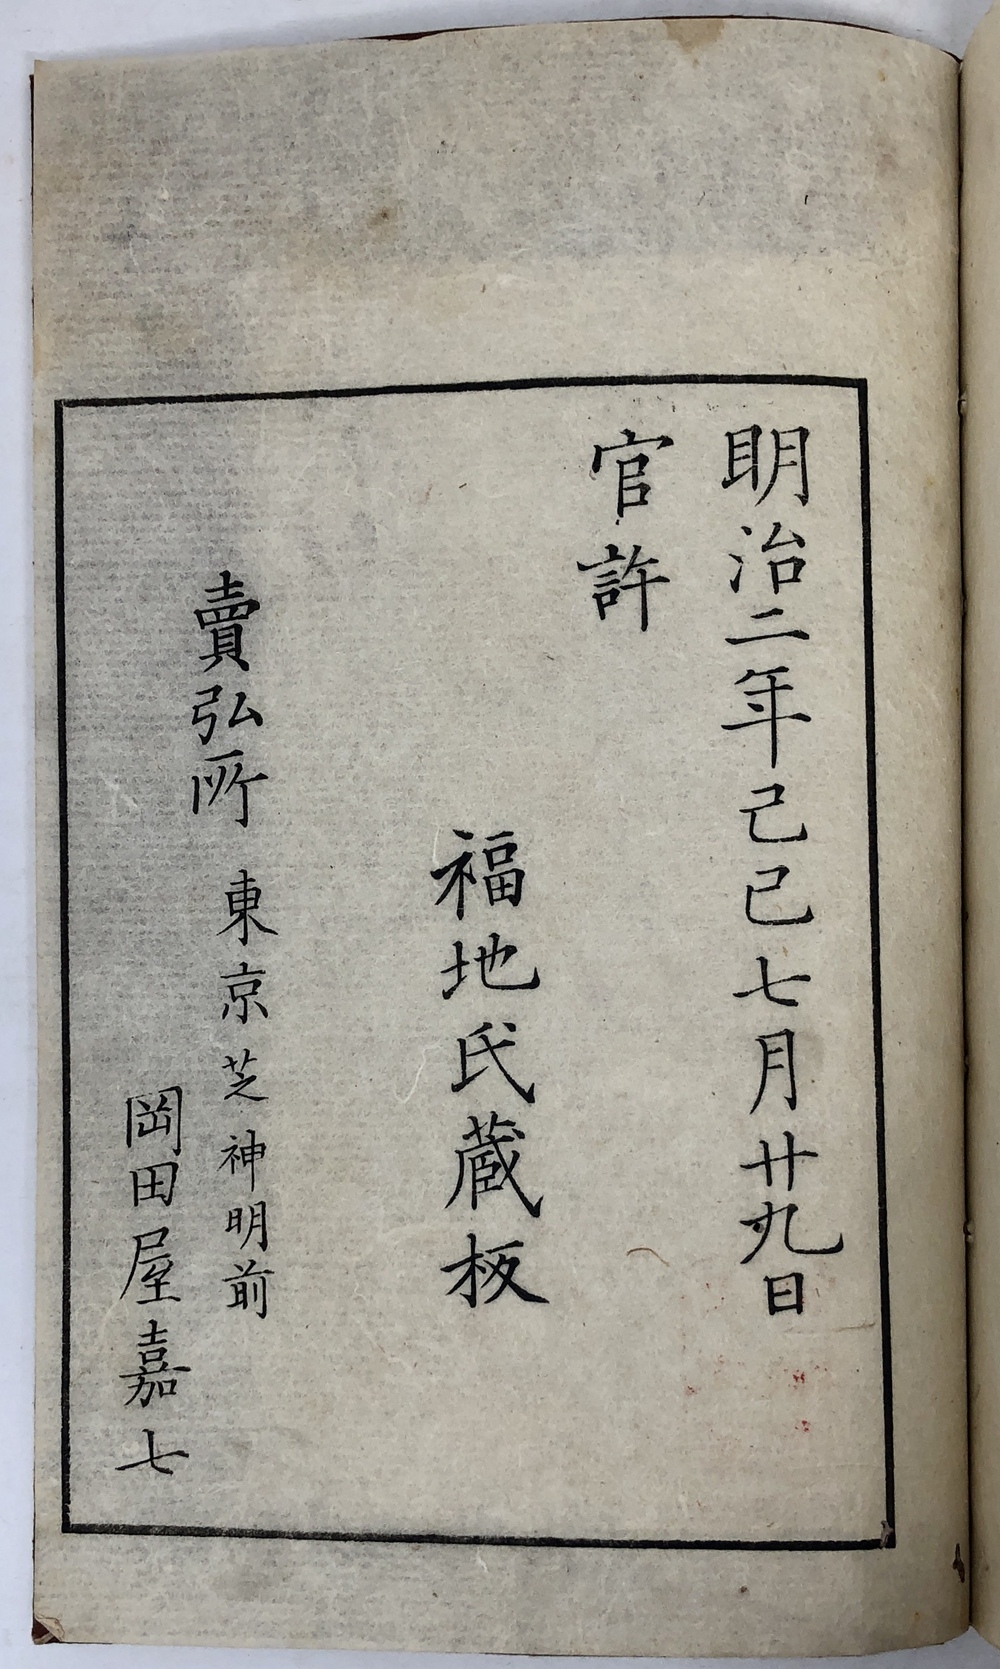 明治二年己巳七月廿九日
官許
福地氏蔵板
賣弘所 東京芝神明前
岡田屋嘉七